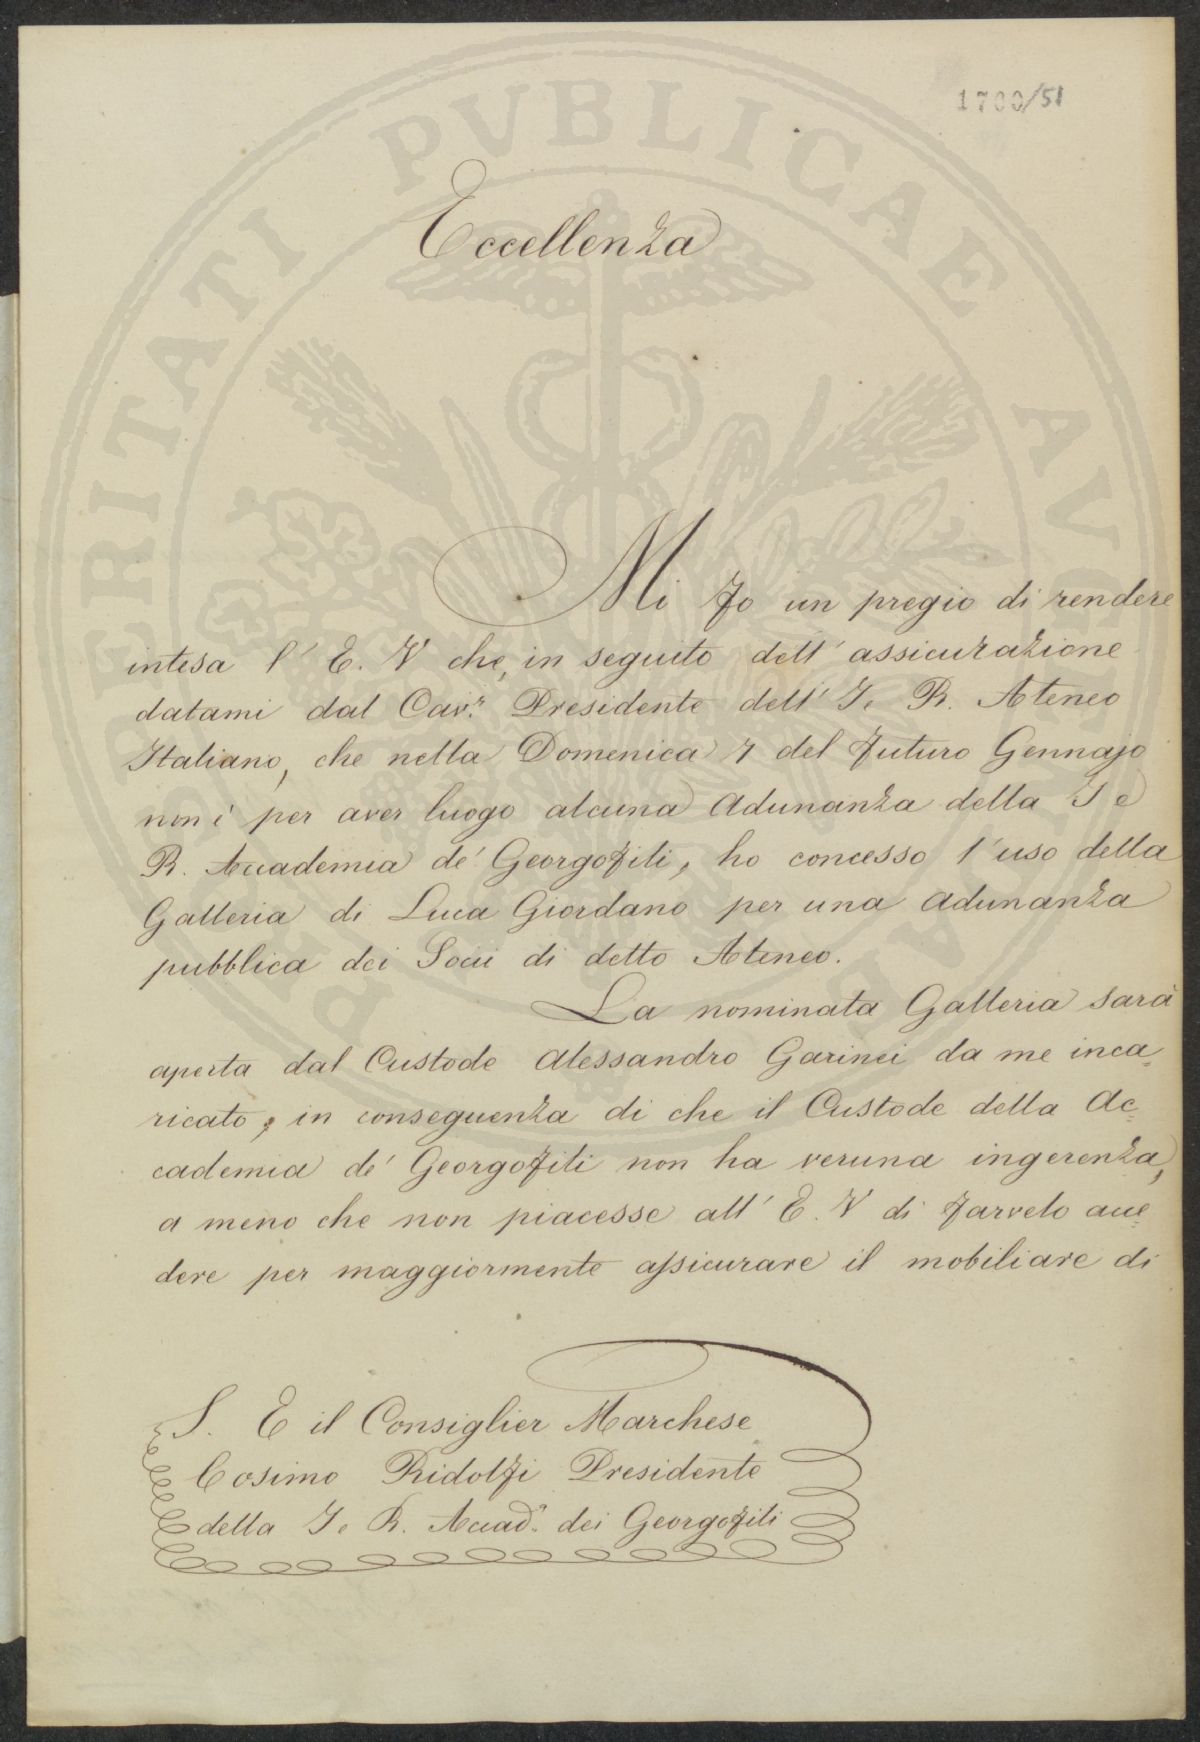 1700/51
Eccellenza
Mi fo un pregio di rendere
intesa l' E. V che, in seguito dell' assicurazione
datami dal Cav.r Presidente dell' I. R. Ateneo
Italiano, che nella Domenica 7 del futuro Gennajo
non è per aver luogo alcuna Adunanza della I e
R. Accademia de' Georgofili, ho concesso l'uso della
Galleria di Luca Giordano per una Adunanza
pubblica dei Socii di detto Ateneo.
La nominata Galleria sarà
aperta dal Custode Alessandro Garinei da me inca=
ricato, in conseguenza di che il Custode della Ac=
cademia de' Georgofili non ha veruna ingerenza,
a meno che non piacesse all' E. V di farvelo acce=
dere per maggiormente assicurare il mobiliare di
S. E il Consiglier Marchese
Cosimo Ridolfi Presidente
della I. R. Accad.a dei Georgofili
PROSPERITATI PVBLICAE AVGENDAE